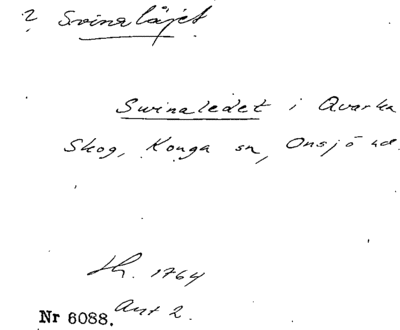 ? Svinaläjet
Swinaledet i Qvarka
Skog, Konga sn, Onsjö hd.
Lh. 1764
Akt 2.
Nr 6088.